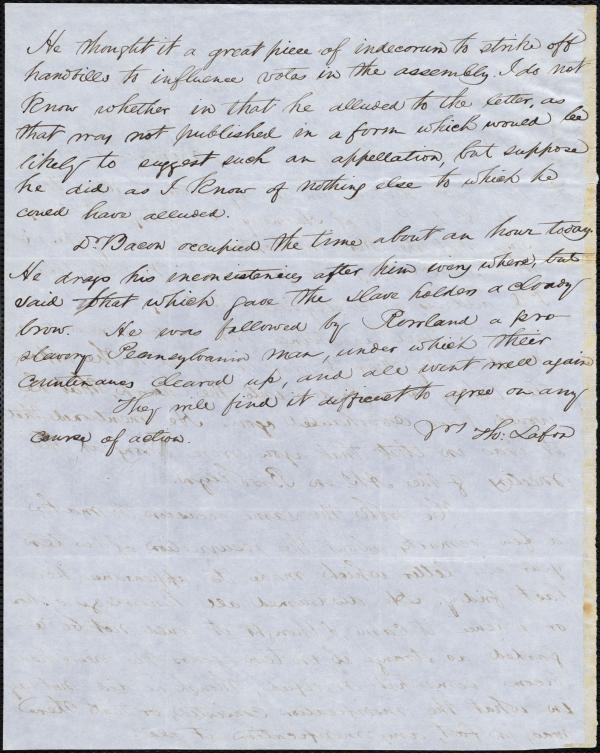 He thought it a great piece of indecorum to strike off
handbills to influence votes in the assembly. I do not
know whether in that he alluded to the letter, as
that was not published in a form which would be
likely to suggest such an appellation, but suppose
he did as I know of nothing else to which he
could have alluded.
Dr Bacon occupied the time about an hour today.
He drags his inconsistencies after him every where, but
said that which gave the slave holders a cloudy
brow. He was followed by Rowland a pro
slavery Pennsylvania man, under which their
countenances cleared up, and all went well again
They will find it difficult to agree on any
course of action.
Yrs Th: Lafon